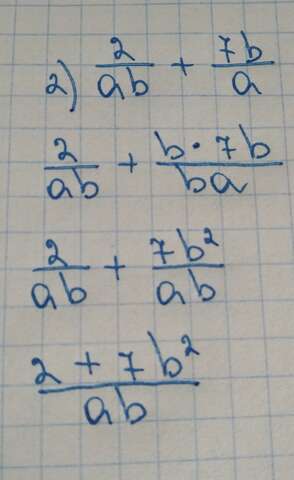 2) 2/ab + 7b/a
2/ab + b·7b/ba
2/ab + 7b²/ab
2 + 7b²/ab